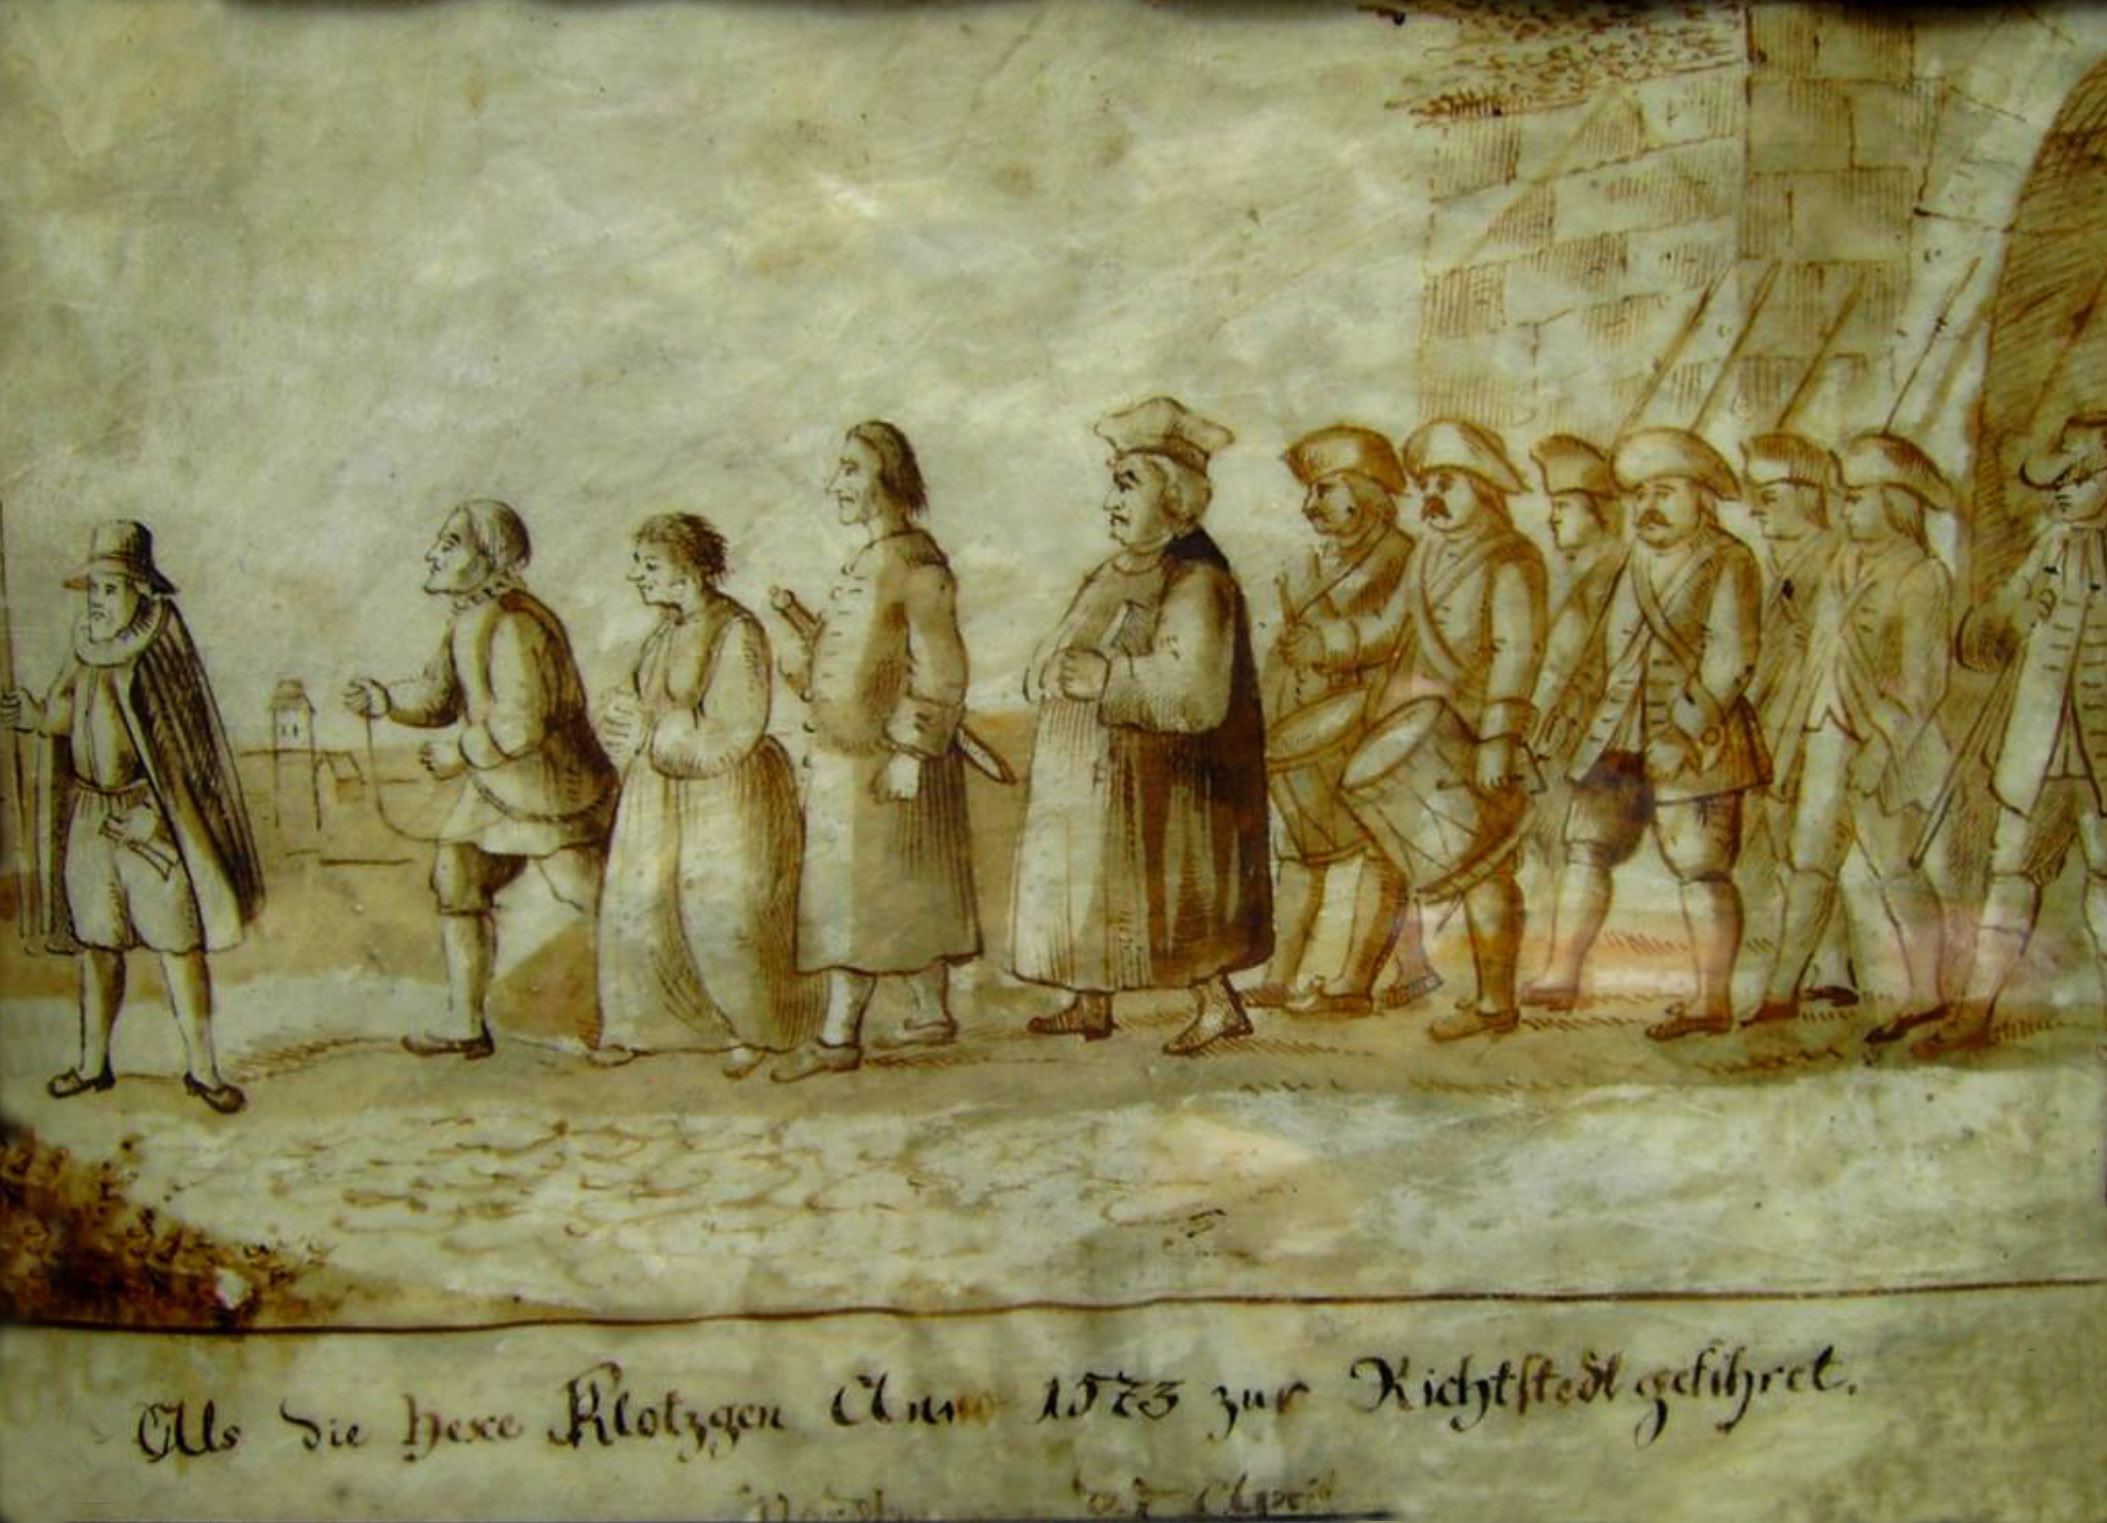 Als die Hexe Klotzgen Anno 1573 zur Richtstedt gefihret.
April